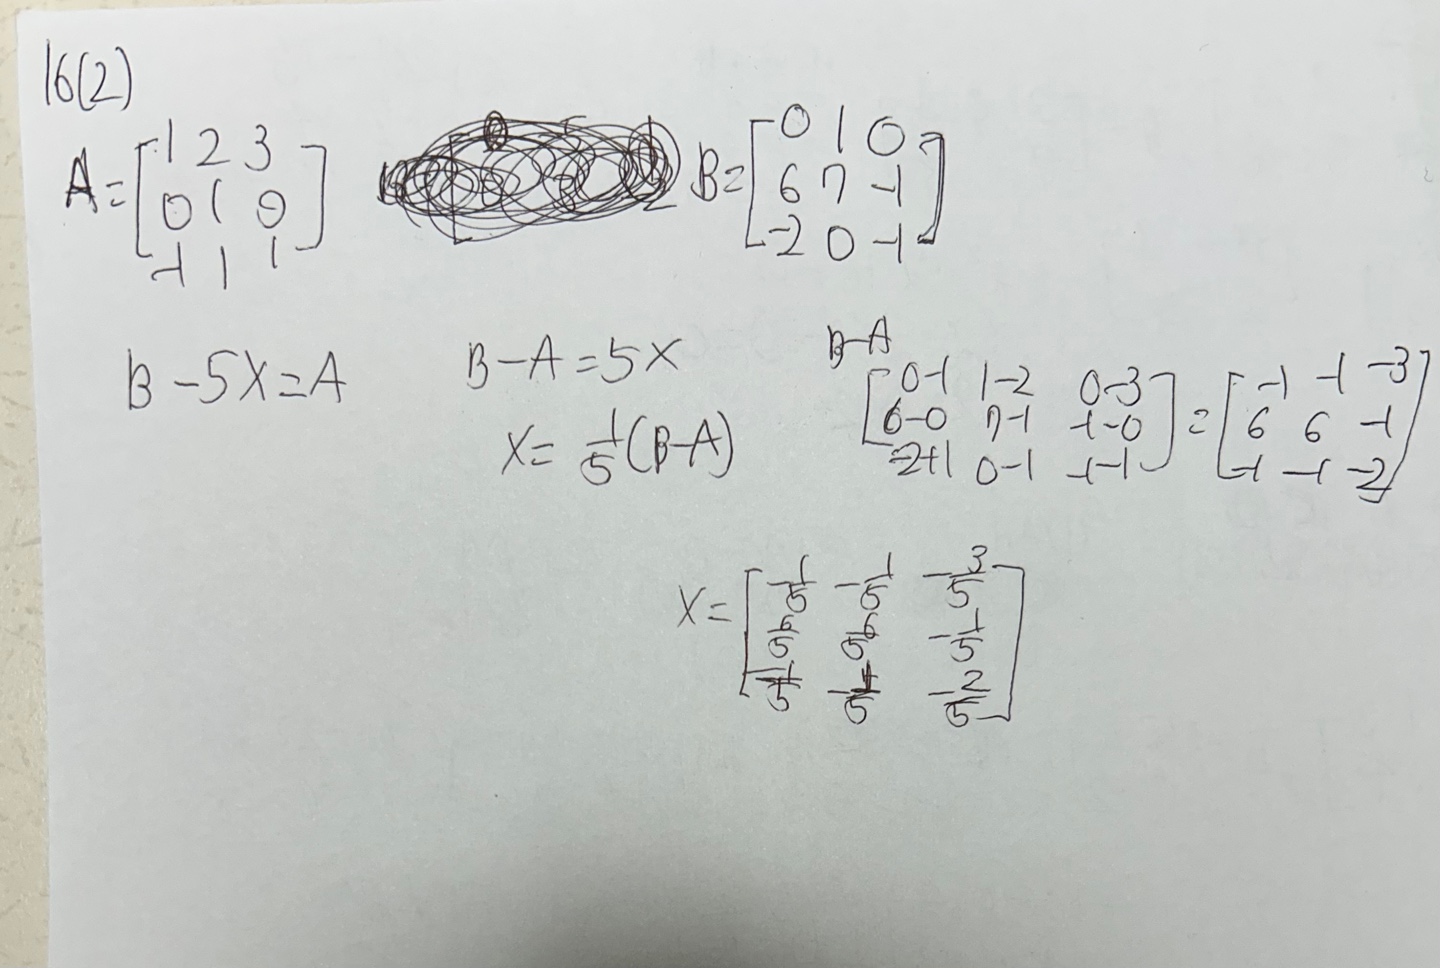 16(2)
A = [1 2 3
0 1 0
-1 1 1]
B = [0 1 0
6 7 -1
-2 0 -1]
B - 5X = A
B - A = 5X
X = 1/5 (B - A)
B-A
[0-1 1-2 0-3
6-0 7-1 -1-0
-2+1 0-1 -1-1] = [-1 -1 -3
6 6 -1
-1 -1 -2]
X = [-1/5 -1/5 -3/5
6/5 6/5 -1/5
-1/5 -1/5 -2/5]